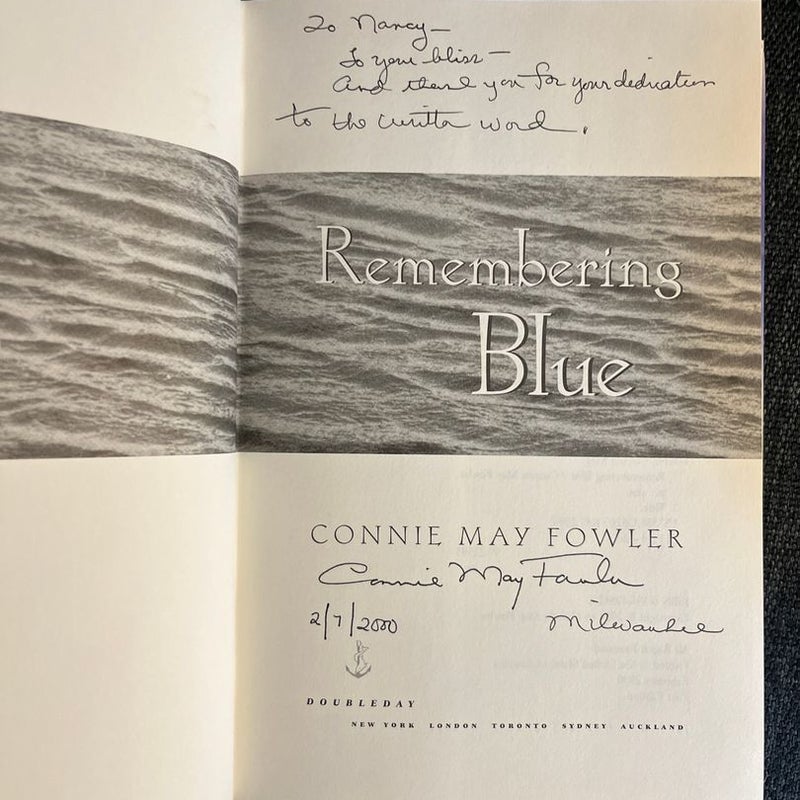 To Nancy—
To your bliss—
And thank you for your dedication
to the written word.
Remembering
Blue
CONNIE MAY FOWLER
Connie May Fowler
2/7/2000 Milwaukee
DOUBLEDAY
NEW YORK LONDON TORONTO SYDNEY AUCKLAND